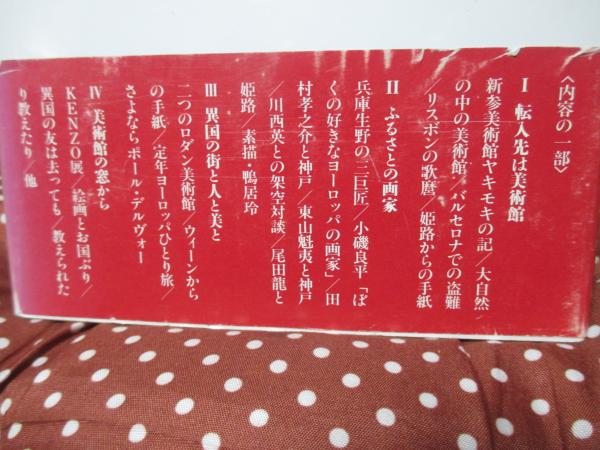 〈内容の一部〉
Ⅰ 転入先は美術館
新参美術館ヤキモキの記／大自然
の中の美術館／バルセロナでの盗難
／リスボンの歌麿／姫路からの手紙
Ⅱ ふるさとの画家
兵庫生野の三巨匠／小磯良平「ぼ
くの好きなヨーロッパの画家」／田
村孝之介と神戸／東山魁夷と神戸
／川西英との架空対談／尾田龍と
姫路／素描・鴨居玲
Ⅲ 異国の街と人と美と
二つのロダン美術館 ウィーンから
の手紙／定年ヨーロッパひとり旅／
さよなら ポール・デルヴォー
Ⅳ 美術館の窓から
KENZO展 絵画とお国ぶり／
異国の友は去っても／教えられた
り教えたり／他